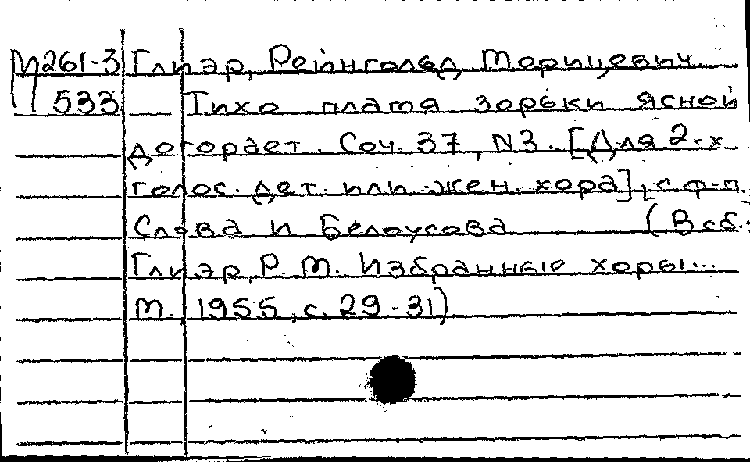 М261-3 Глиэр, Рейнгольд Морицевич.
533 Тихо пламя зорьки ясной
догорает. Соч. 37, N3. [Для 2-х
голос. дет. или жен. хора], с ф-п.
Слова И Белоусова (В сб.:
Глиэр, Р. М. Избранные хоры...
М., 1955, с. 29-31)